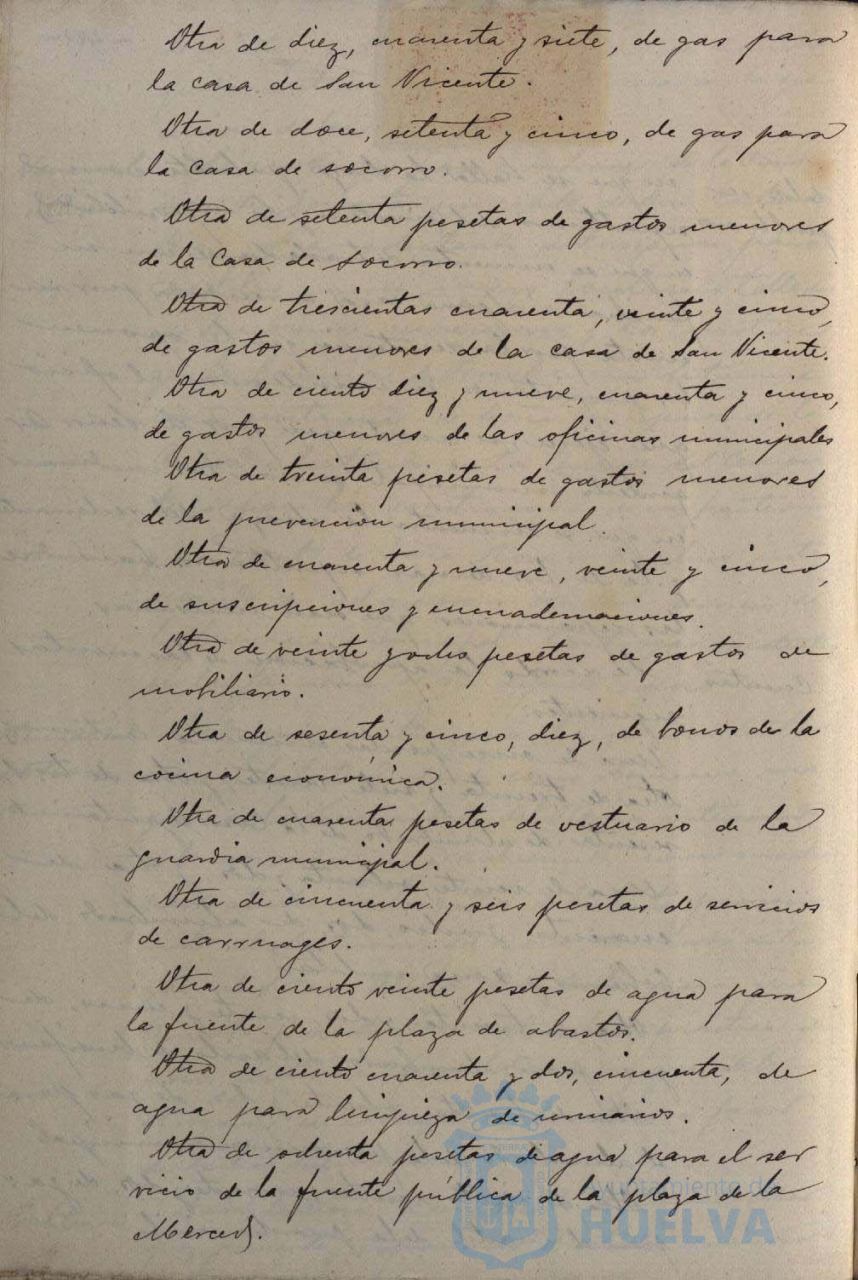 Otra de diez, cuarenta y siete, de gas para
la casa de San Vicente.
Otra de doce, setenta y cinco, de gas para
la casa de socorro.
Otra de setenta pesetas de gastos menores
de la Casa de socorro.
Otra de trescientas cuarenta, veinte y cinco,
de gastos menores de la casa de San Vicente.
Otra de ciento diez y nueve, cuarenta y cinco,
de gastos menores de las oficinas municipales
Otra de treinta pesetas de gastos menores
de la prevencion municipal.
Otra de cuarenta y nueve, veinte y cinco,
de suscripciones y encuadernaciones.
Otra de veinte y ocho pesetas de gastos de
mobiliario.
Otra de sesenta y cinco, diez, de bonos de la
cocina económica.
Otra de cuarenta pesetas de vestuario de la
guardia municipal.
Otra de cincuenta y seis pesetas de servicios
de carruages.
Otra de ciento veinte pesetas de agua para
la fuente de la plaza de abastos.
Otra de ciento cuarenta y dos, cincuenta, de
agua para limpieza de urinarios.
Otra de ochenta pesetas de agua para el ser
vicio de la fuente pública de la plaza de la
Merced.
Ayuntamiento de
HUELVA